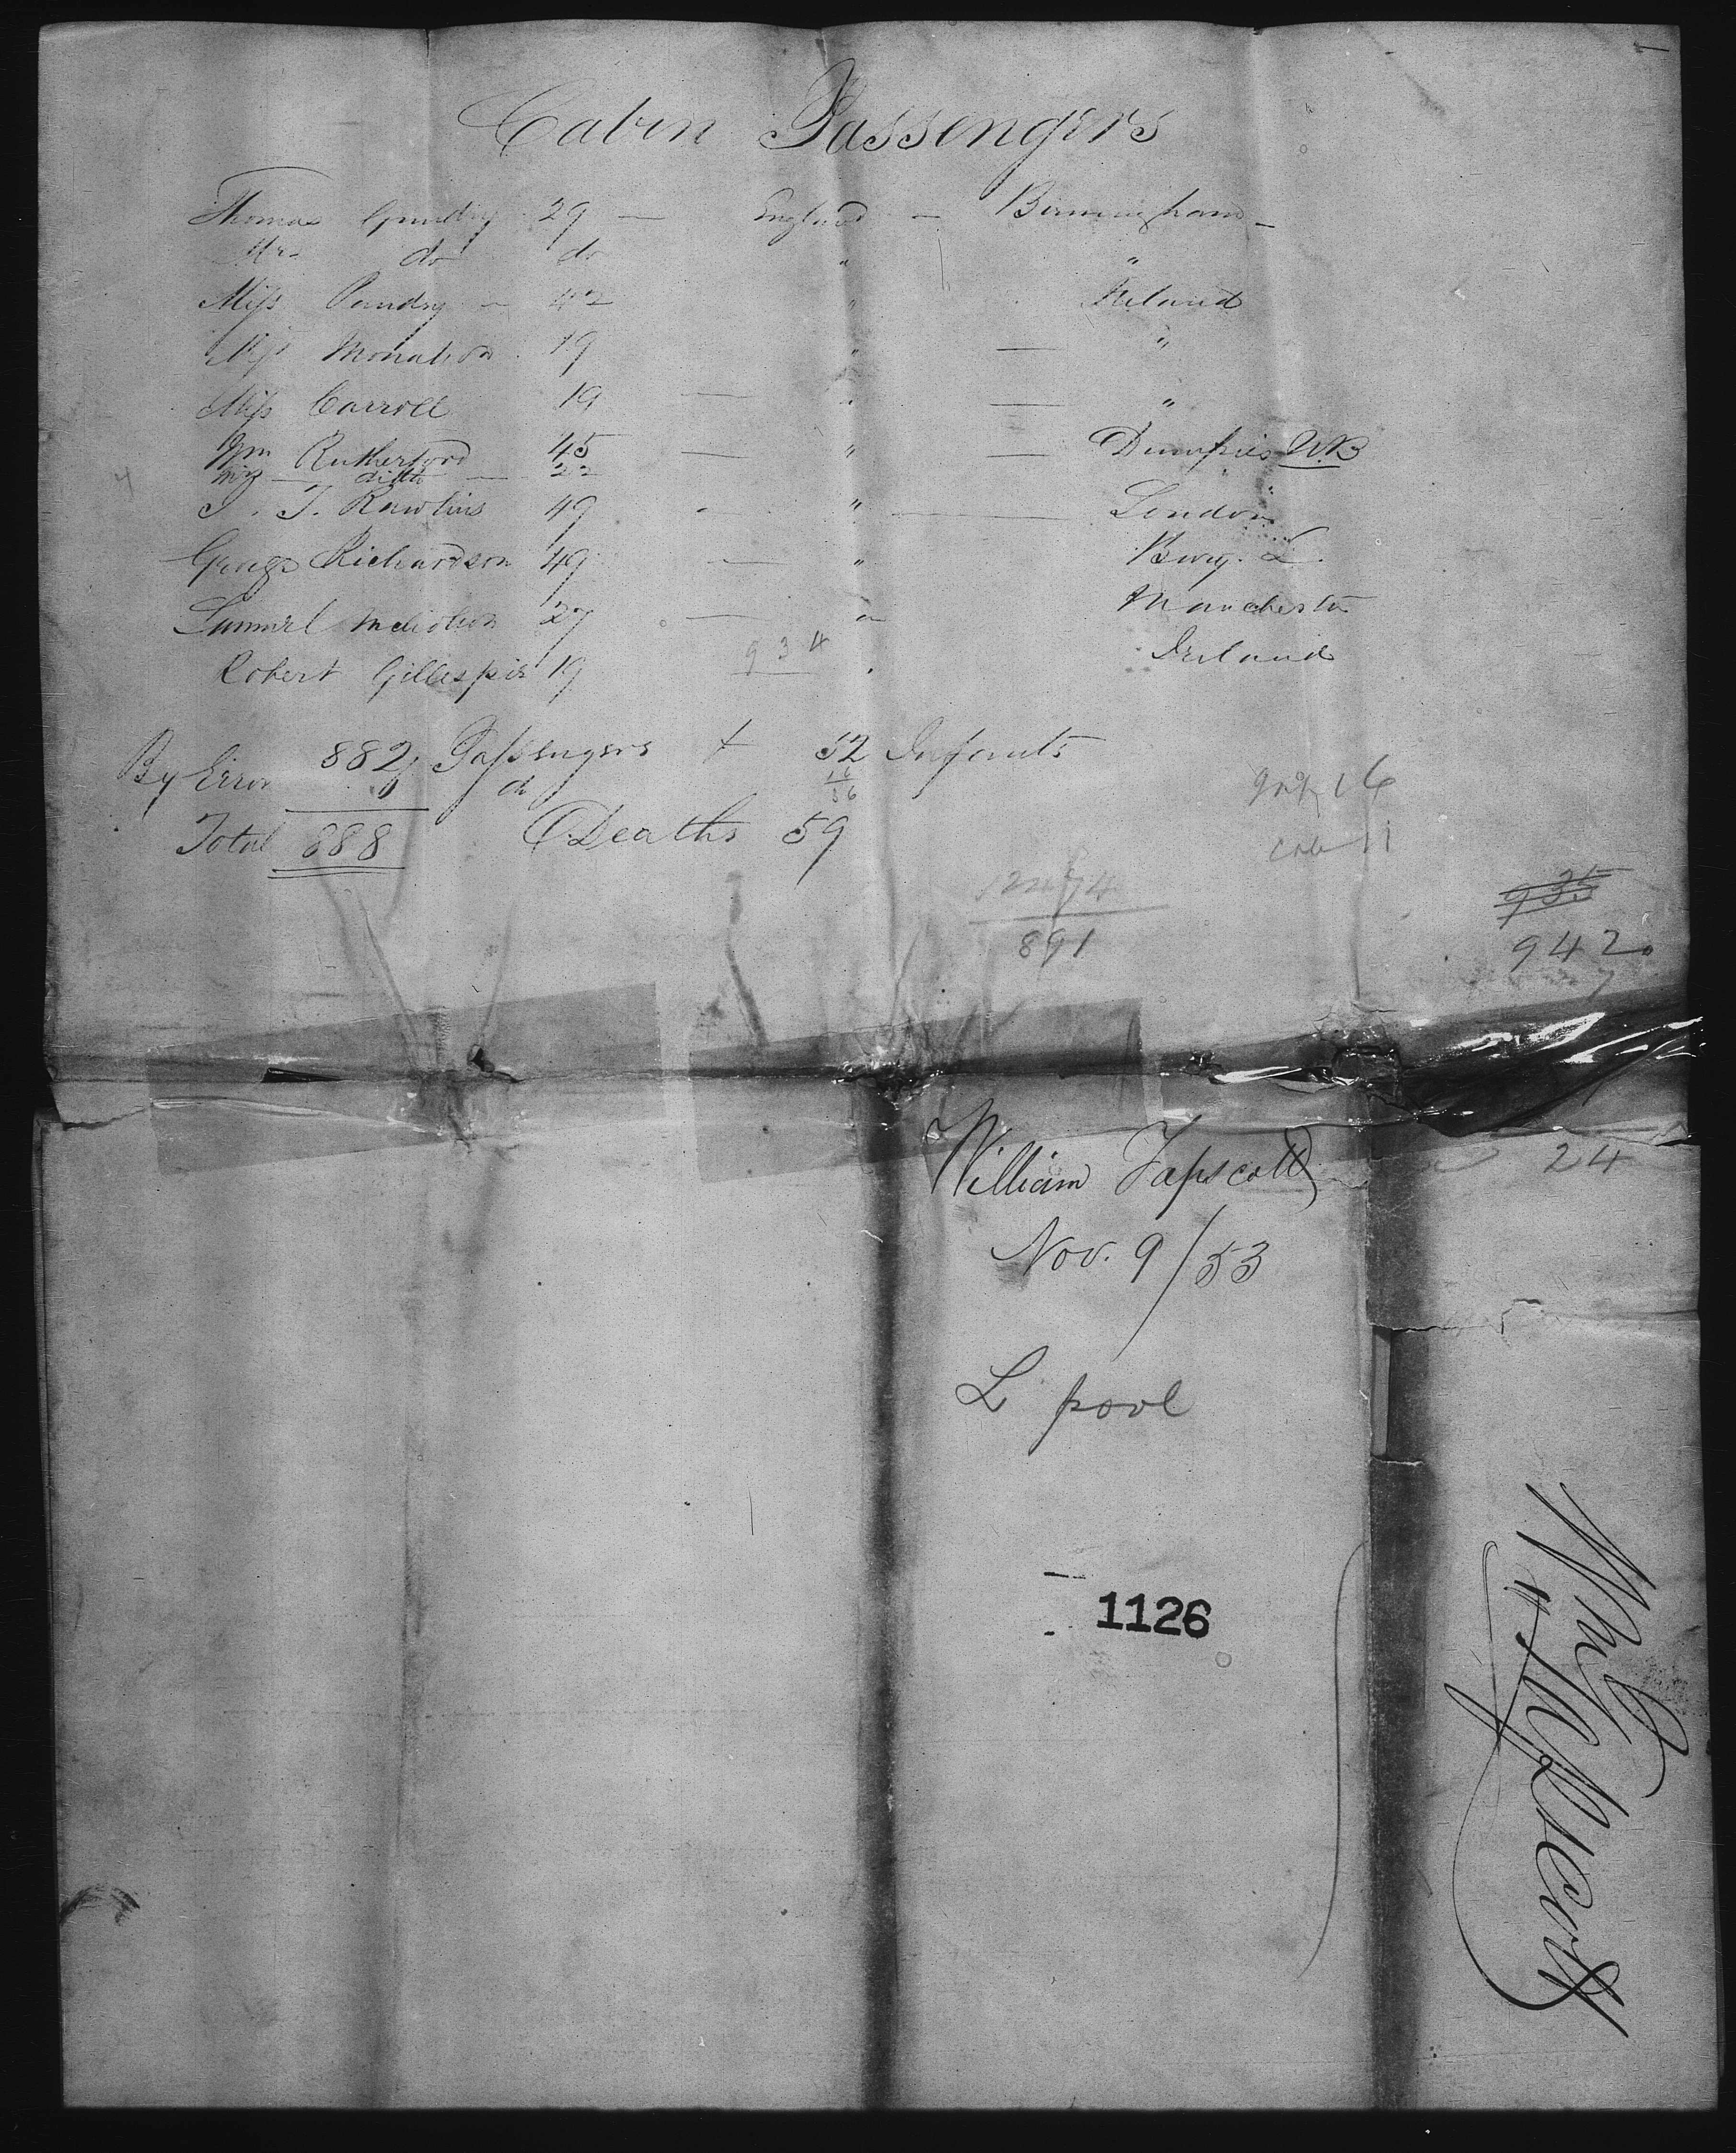 Cabin Passengers
Thomas Gundry 29 — England — Birmingham —
Mrs do do " "
Miss Gundry — 42 " Ireland
Miss 19 " — "
Miss Carroll 19 — " — "
Wm Rutherford 45 — " — Dumfries N.B
Mrs — ditto — 22
J. T. Rawlins 49 - " — London
George Richardson 49 — " Bury. L.
Samuel 27 — " Manchester
934
Robert Gillespie 19 " Ireland
882 Passengers + 52 Infants
By Error 6 do
16
Total 888 Deaths 59
16
cab 11
891
935
942
7
24
William Tapscott
Nov. 9/53
L pool
1126
Wm Tapscott